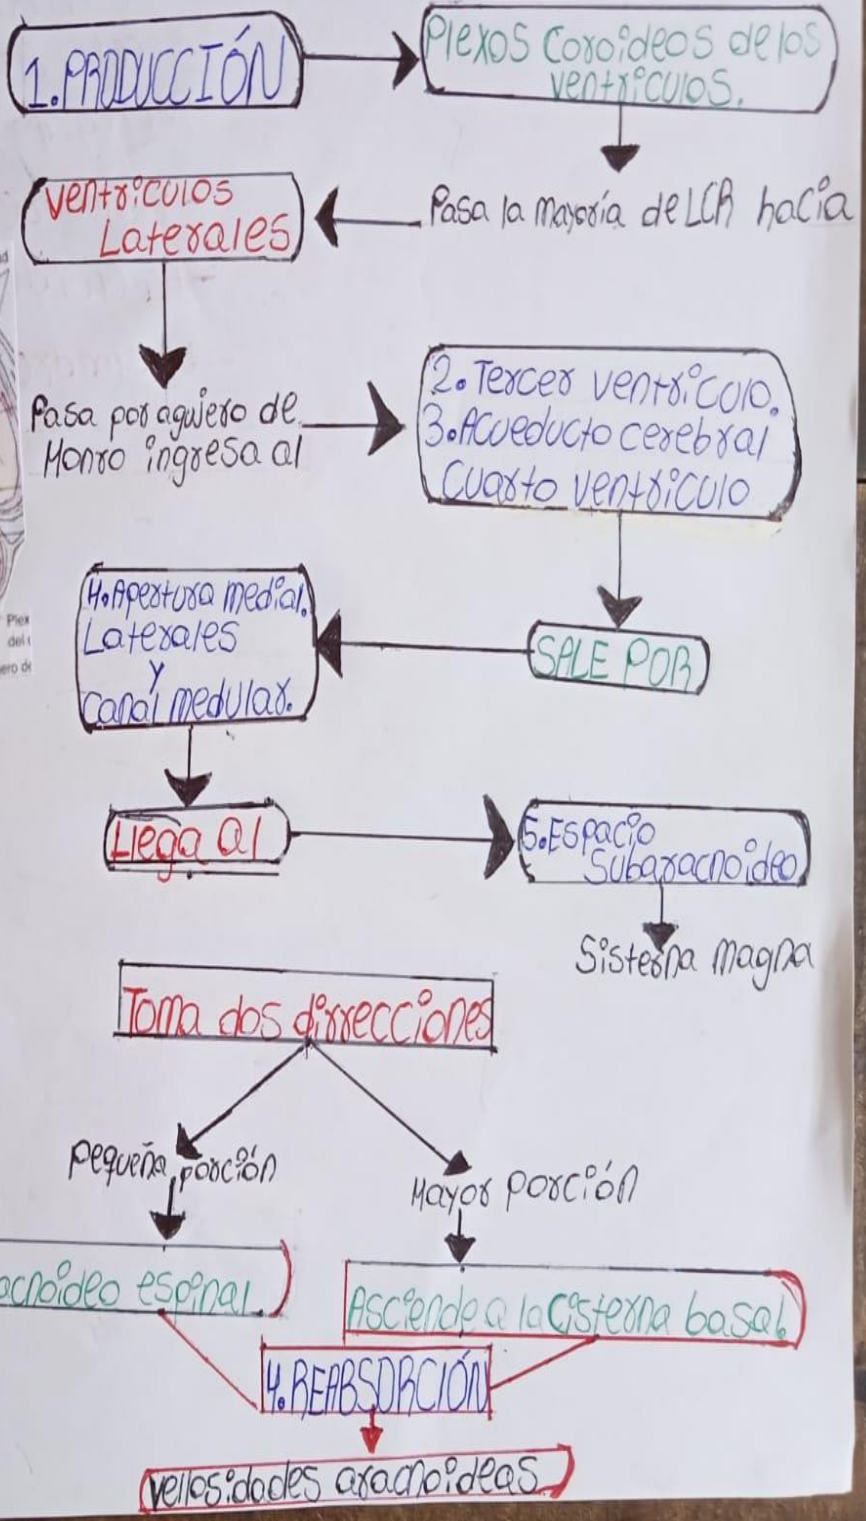 1.PRODUCCIÓN
Plexos Coroideos de los
ventriculos.
Pasa la mayoría de LCR hacia
ventriculos
Laterales
Pasa por agujero de
Monro ingresa al
2. Tercer ventriculo.
3. Acueducto cerebral
Cuarto ventriculo
SALE POR
4. Apertura medial.
Laterales
y
Canal medular.
Llega al
5. Espacio
Subaracnoideo
Sisterna magna
Toma dos dirrecciones
Pequeña porción
Mayor porción
acnoideo espinal.
Asciende a la Cisterna basal
4. REABSORCIÓN
vellosidades aracnoideas.
Plex
del
ero de